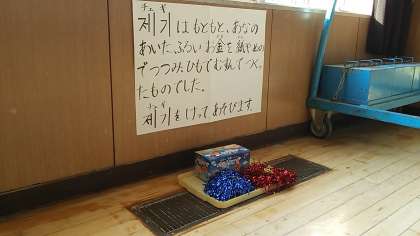 チェギ
제기はもともと、あなの
あいたふるいお金を紙やぬの
でつつみ、ひもでむすんでつくっ
たものでした。
チェギ
제기をけってあそびます。